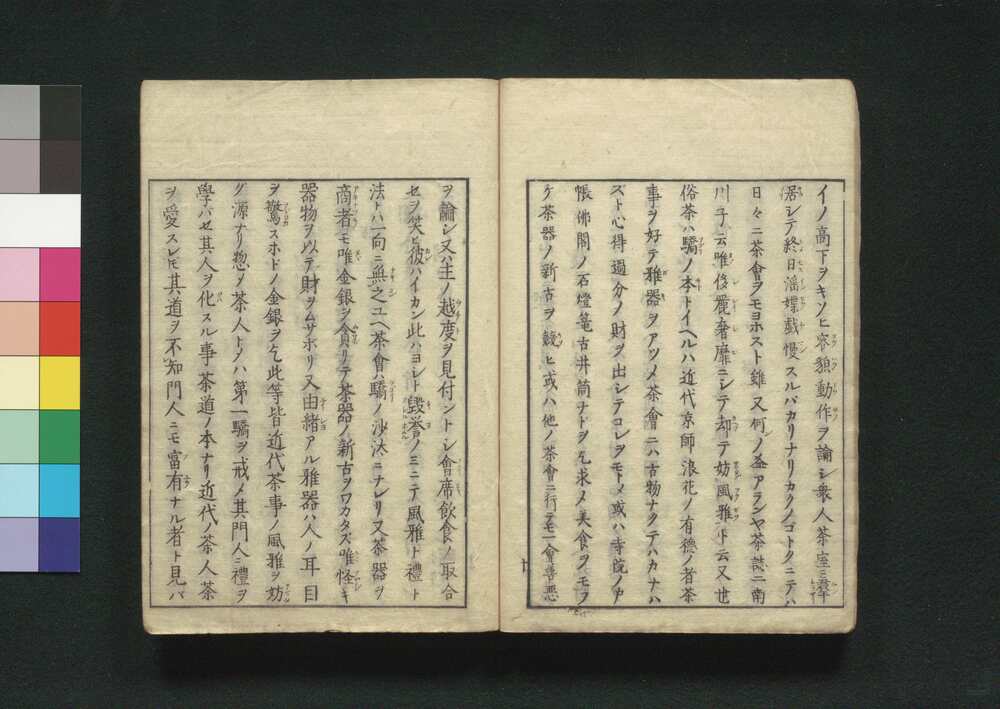 イノ高下ヲキソヒ容貌動作ヲ論シ衆人茶座ニ群
居シテ終日淫媟戯慢スルバカリナリカクノゴトクニテハ
日々ニ茶會ヲモヨホスト雖又何ノ益アランヤ茶話ニ南
川子云唯侈麗奢靡ニシテ却テ妨風雅ト云又世
俗茶ハ驕ノ本トイヘルハ近代京師浪花ノ有徳ノ者茶
事ヲ好テ雅器ヲアツメ茶會ニハ古物ナクテハカナハ
ズト心得過分ノ財ヲ出シテコレヲモトメ或ハ寺院ノ戸
帳佛閣ノ石燈篭古井筒ナドヲ乞求メ美食ヲモフ
ケ茶器ノ新古ヲ競ヒ或ハ他ノ茶會ニ行テモ一會善悪
ヲ論シ又ハ主ノ越度ヲ見付ントシ會席飲食ノ取合
セヲ笑ヒ彼ハイカン此ハヨシト毀誉ノミニテ風雅ト禮ト
法トハ一向ニ無之ユヘ茶會ハ驕ノ沙汰ニナレリ又茶器ヲ
商者モ唯金銀ヲ貪リテ茶器ノ新古ヲワカタズ唯怪キ
器物ヲ以テ財ヲムサホリ又由緒アル雅器ハ人ノ耳目
ヲ驚スホトノ金銀ヲ乞此等皆近代茶事ノ風雅ヲ妨
グ源ナリ惣メ茶人トノハ第一驕ヲ戒メ其門人ニ禮ヲ
學ハセ其人ヲ化スル事茶道ノ本ナリ近代ノ茶人茶
ヲ愛スレ𪜈其道ヲ不知門人ニモ富有ナル者ト見バ